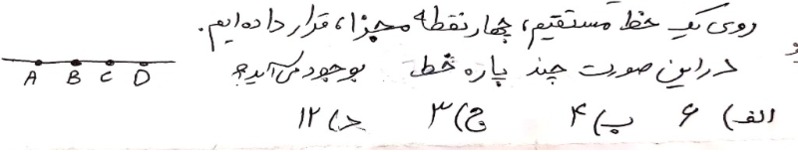 روی یک خط مستقیم، چهار نقطهٔ مجزا، قرار داده ایم.
در این صورت چند پاره خط بوجود می آید؟
A B C D
الف) ۶ ب) ۴ ج) ۳ د) ۱۲